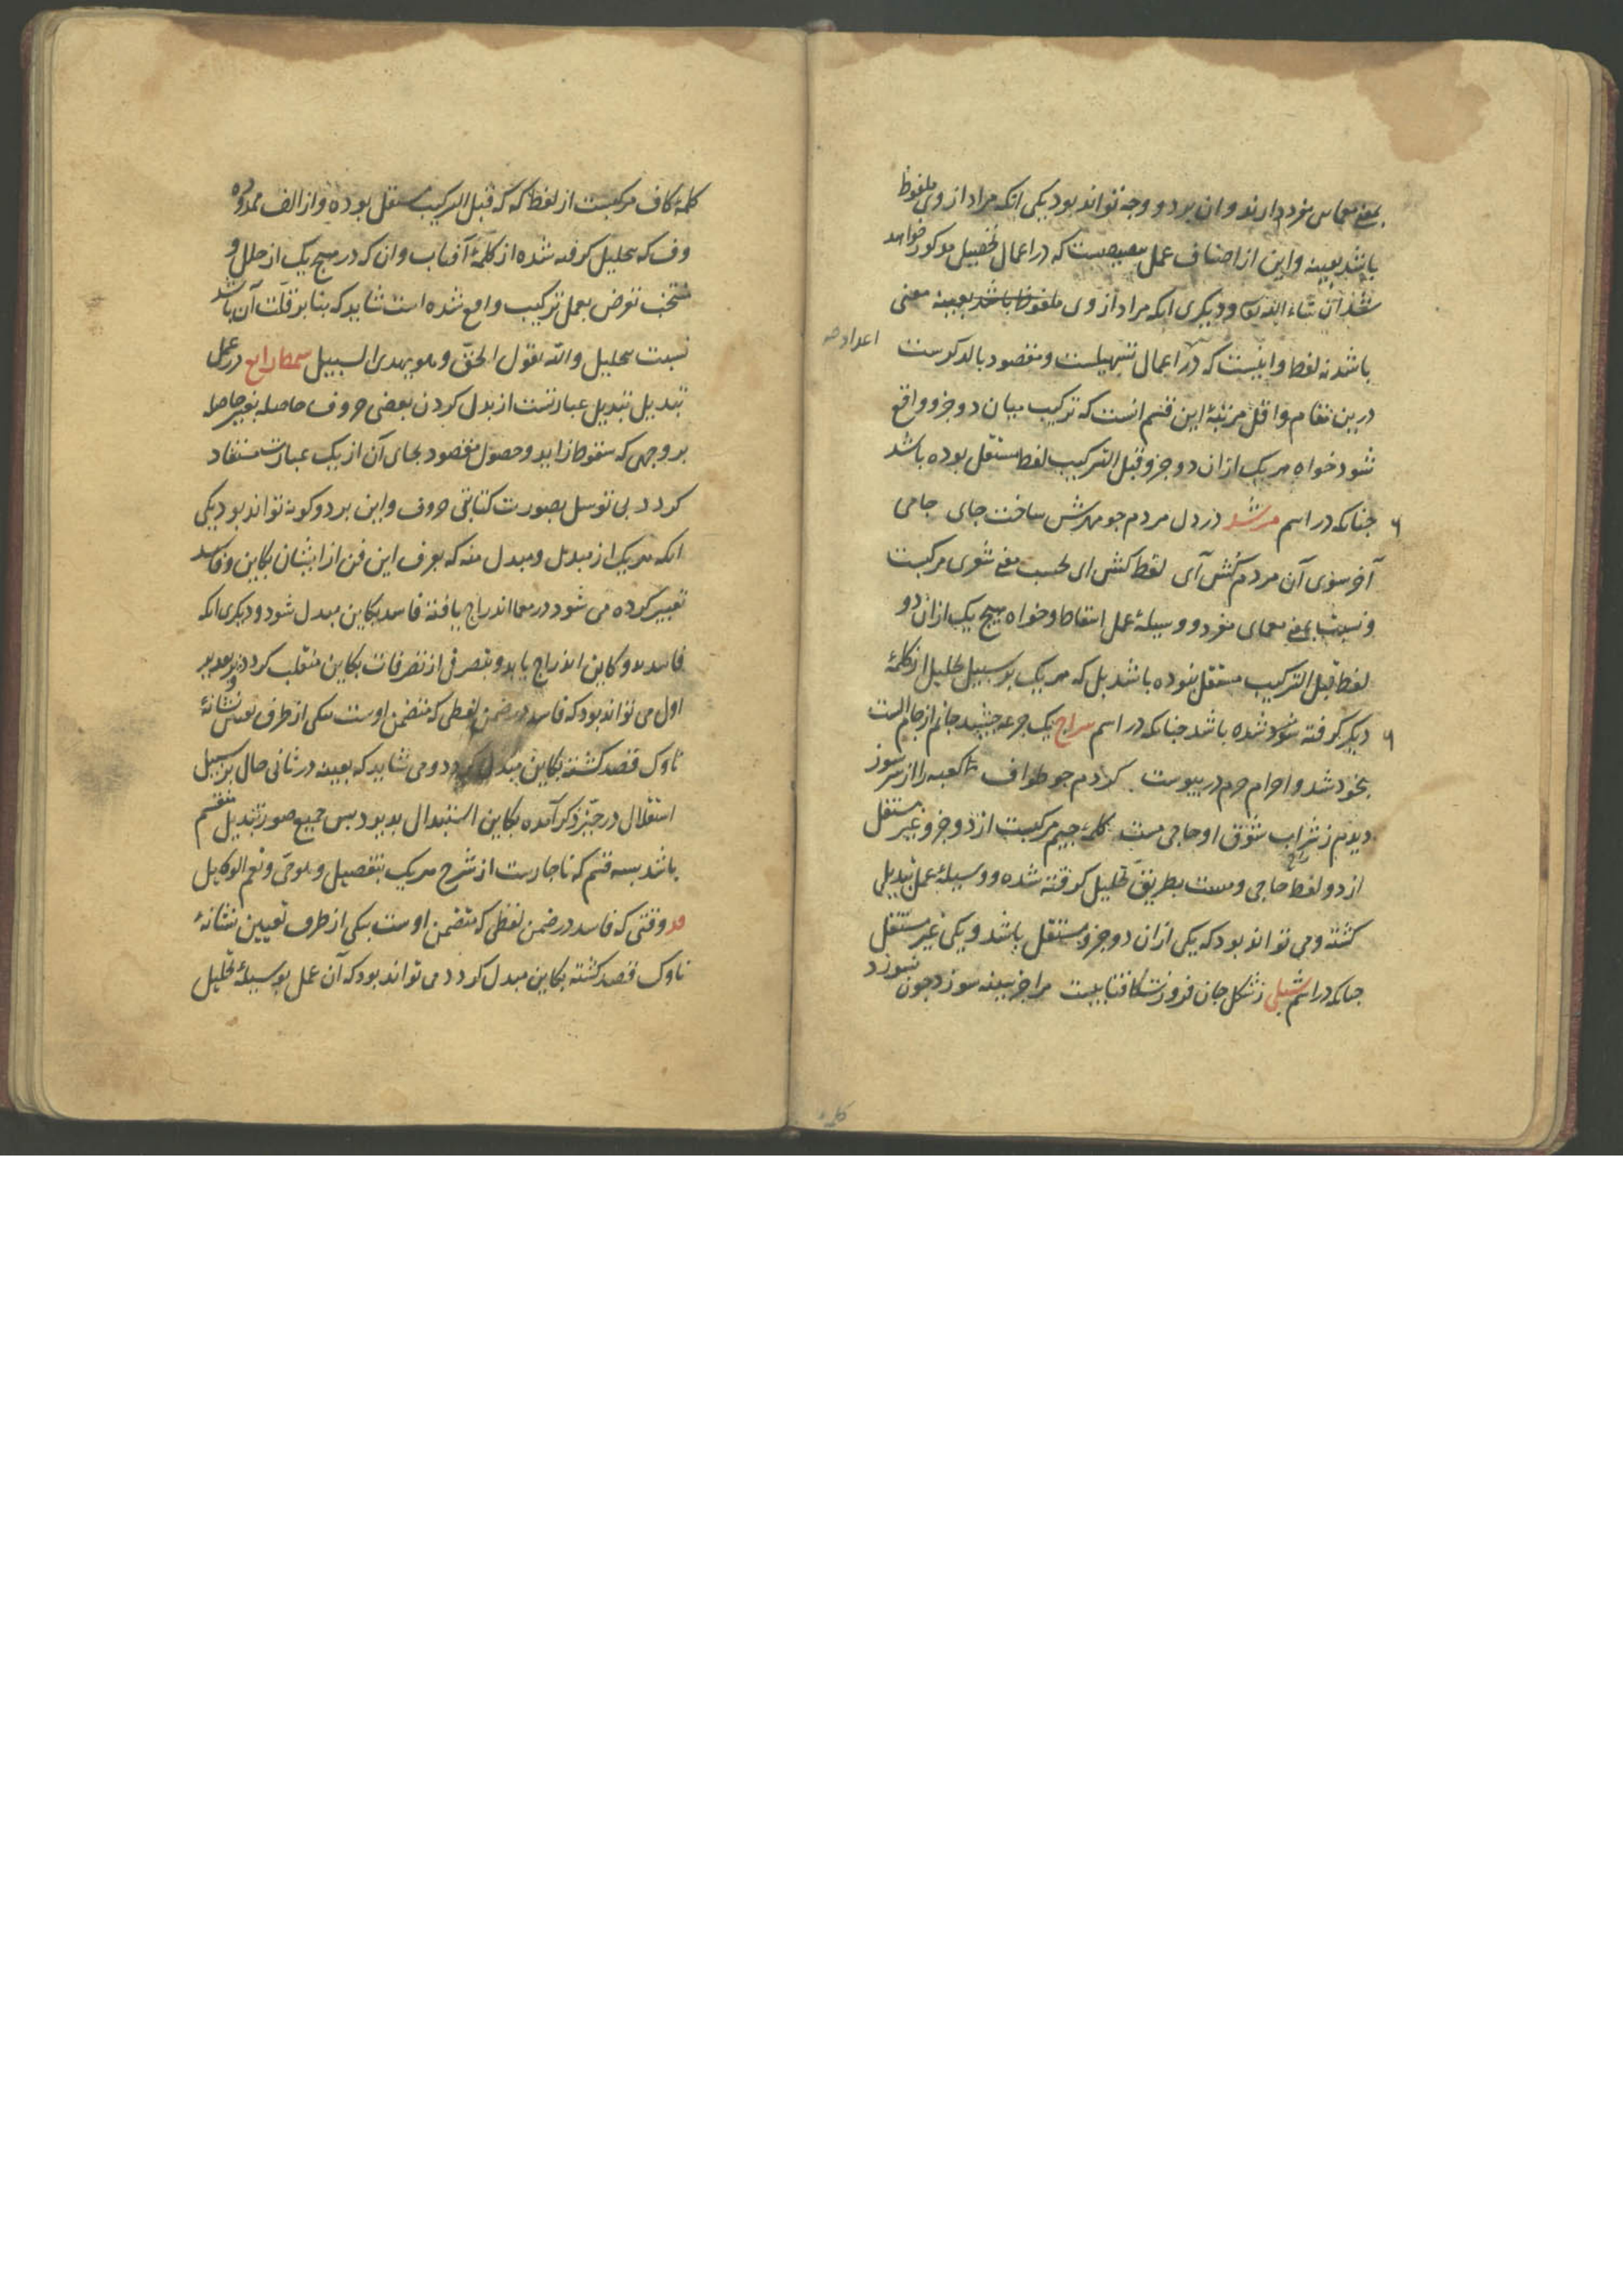 بمعنی معمایی مفرد دارند و ان بر دو وجه تواند بود یکی انکه مراد از وی ملفوظ
باشد بعینه و این از اصناف عمل تنصیصست که در اعمال تحصیل مذکور خواهد
شد ان شاء الله تعالی و دیگری انکه مراد از وی ملفوظ باشد بعینه معنی
باشد نه لفظ و اینست که در اعمال تسهیلست و مقصود بالذکرست
درین مقام و اقل مرتبۀ این قسم انست که ترکیب میان دو جزو واقع
شود خواه هر یک ازان دو جزو قبل الترکیب لفظ مستقل بوده باشد
چنانکه در اسم مرشد در دل مردم جو مهرش ساخت جای جامی
آخر سوی آن مردم کش آی لفظ کش ای بحسب معنی شعری مرکبست
و نسبت بمعنی معمای مفرد و وسیلۀ عمل اسقاط و خواه هیچ یک ازان دو
لفظ قبل الترکیب مستقل نبوده باشد بل که هر یک بر سبیل تحلیل از کلمۀ
دیگر گرفته شده باشد چنانکه در اسم سراج یک جرعه چشید جانم از جام الست
بیخود شد و احرام حرم در پیوست کردم جو طواف کعبه را از سر سوز
دیدم ز شراب شوق او حاجی مست کلمۀ جیم مرکبست از دو جزو غیر مستقل
از دو لفظ حاجی و مست بطریق تحلیل گرفته شده و وسیلۀ عمل تبدیل
گشته و می تواند بود که یکی ازان دو جزو مستقل باشد و یکی غیر مستقل
چنانکه در اسم شبلی ز شکل جان فروزت کافتابیست مرا جز سینه سوزد چون نسوزد
کلمۀ کاف مرکبست از لفظ که که قبل الترکیب مستقل بوده و از الف ممدوده
و ف که بتحلیل گرفته شده از کلمۀ آفتاب و ان که در هیچ یک از حلل و
منتخب تعرض بعمل ترکیب واقع نشده است شاید که بنا بر قلت آن باشد
نسبت بتحلیل و الله یقول الحق و هو یهدی السبیل سمط رابع در عمل
تبدیل تبدیل عبارتست از بدل کردن بعضی حروف حاصله بغیر حاصله
بر وجهی که سقوط زاید و حصول مقصود بجای آن از یک عبارت مستفاد
کردد بی توسل بصورت کتابتی حروف و این بر دو گونه تواند بود یکی
انکه هر یک از مبدل و مبدل منه که بعرف این فن از ایشان بکاین و فاسد
تعبیر کرده می شود در معما اندراج یافته فاسد بکاین مبدل شود و دیگری انکه
فاسد و کاین اندراج یابد و بتصرفی از تصرفات بکاین منقلب کردد
اول می تواند بود که فاسد در ضمن لفظی که متضمن اوست یکی از طرف تعیین نشانۀ
ناوک قصد کشته بکاین مبدل کردد و می شاید که بعینه در ثانی حال بر سبیل
استقلال در حیز ذکر آمده بکاین استبدال پذیرد پس جمیع صور تبدیل منقسم
باشد بسه قسم که ناچارست از شرح هر یک بتفصیل و هو حی و نعم الوکیل
وقتی که فاسد در ضمن لفظی که متضمن اوست یکی از طرف تعیین نشانۀ
ناوک قصد کشته بکاین مبدل کردد می تواند بود که آن عمل بوسیلۀ تحلیل